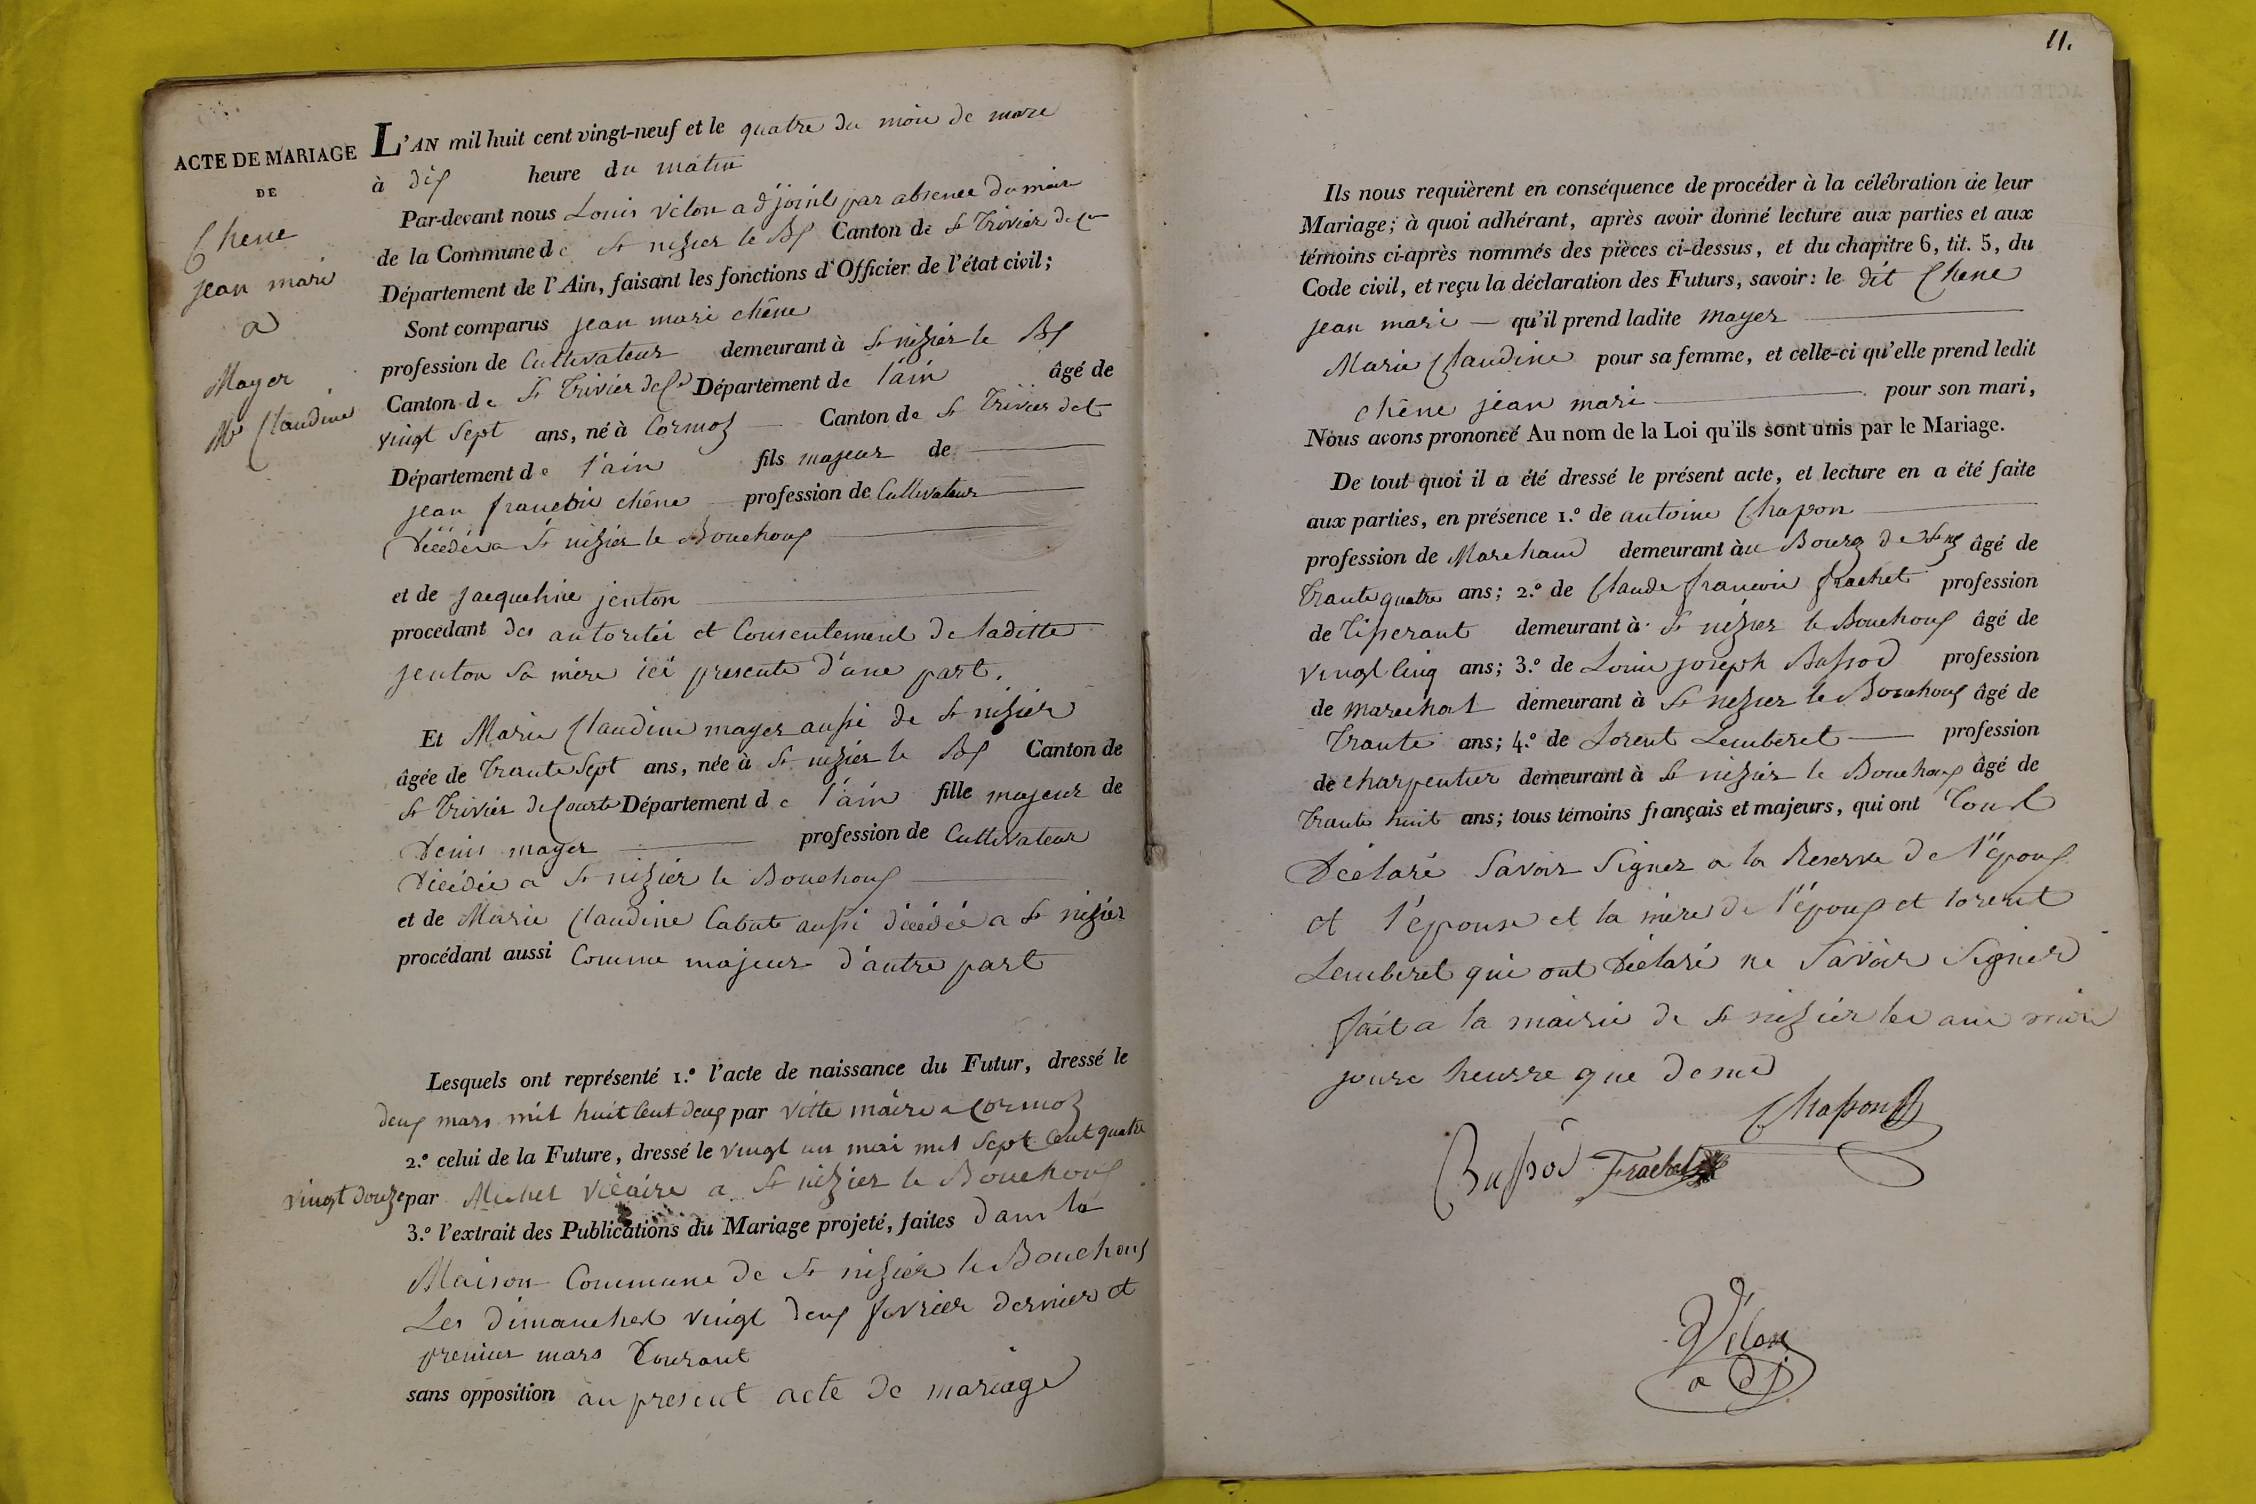 ACTE DE MARIAGE
DE
Chene
jean mari
a
Mayer
Me Claudine
L'AN mil huit cent vingt-neuf et le quatre du moi de mars
à dix heure du matin
Par-devant nous Louis vilon adjoint par absence du mair
de la Commune de St nizier le Bx Canton de St Trivier de Cr
Département de l'Ain, faisant les fonctions d'Officier de l'état civil;
Sont comparus jean mari chêne
profession de Cultivateur demeurant à St nizier le Bx
Canton de St Trivier de Cs Département de l'ain âgé de
vingt Sept ans, né à Cormoz Canton de St Trivier det
Département de l'ain fils majeur de
jean francois chêne profession de Cultivateur
Décédé a St nizier le Bouchoux
et de jacqueline jenton
procédant des autorités et Consentement de laditte
jenton sa mère ici presente d'une part.
Et Marie Claudine mayer aussi de St nizier
âgée de Trante Sept ans, née à St nizier le Bx Canton de
St Trivier de Courte Département de l'ain fille majeur de
Denis mayer profession de Cultivateur
Décédée a St nizier le Bouchoux
et de Marie Claudine Cabut aussi décédée a St nizier
procédant aussi Comme majeur d'autre part
Lesquels ont représenté 1.º l'acte de naissance du Futur, dressé le
deux mars mil huit Cent deux par vitte màire a Cormoz
2.º celui de la Future, dressé le vingt un mai mil Sept Cent quatre
vingt douze par Michel vicaire a St nizier le Bouchoux
3.º l'extrait des Publications du Mariage projeté, faites dans la
Maison Commune de St nizier le Bouchoux
Les dimanches vingt deux fevrier dernier et
premier mars Courant
sans opposition au present acte de mariage
11.
Ils nous requièrent en conséquence de procéder à la célébration de leur
Mariage; à quoi adhérant, après avoir donné lecture aux parties et aux
témoins ci-après nommés des pièces ci-dessus, et du chapitre 6, tit. 5, du
Code civil, et reçu la déclaration des Futurs, savoir: le dit Chene
jean mari — qu'il prend ladite mayer
Marie Claudine pour sa femme, et celle-ci qu'elle prend ledit
chêne jean mari pour son mari,
Nous avons prononcé Au nom de la Loi qu'ils sont unis par le Mariage.
De tout quoi il a été dressé le présent acte, et lecture en a été faite
aux parties, en présence 1.º de antoine Chapon
profession de Marchand demeurant àu Bourg de St nz âgé de
Trante quatre ans; 2.º de Claude francois frachet profession
de Tisserant demeurant à St nizier le Bouchoux âgé de
vingt Cinq ans; 3.º de Louis joseph Bassod profession
de marechal demeurant à St nizier le Bouchoux âgé de
Trante ans; 4.º de Lorent Lemberet profession
de charpentier demeurant à St nizier le Bouchoux âgé de
Trante huit ans; tous témoins français et majeurs, qui ont Tout
Déclaré Savoir Signer a la Reserve de l'époux
et l'épouse et la mère de l'époux et lorent
Lemberet qui ont Déclaré ne Savoir Signer
fait a la mairie de St nizier les ans moi
jours heurre que desus
Chapon
Bassod Frachet
Vilon
adj